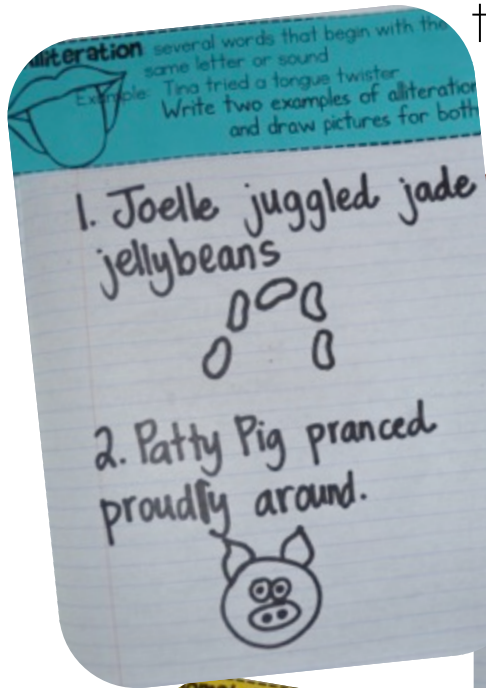 alliteration several words that begin with the
same letter or sound
Example: Tina tried a tongue twister
Write two examples of alliteration
and draw pictures for both
1. Joelle juggled jade
jellybeans
2. Patty Pig pranced
proudly around.